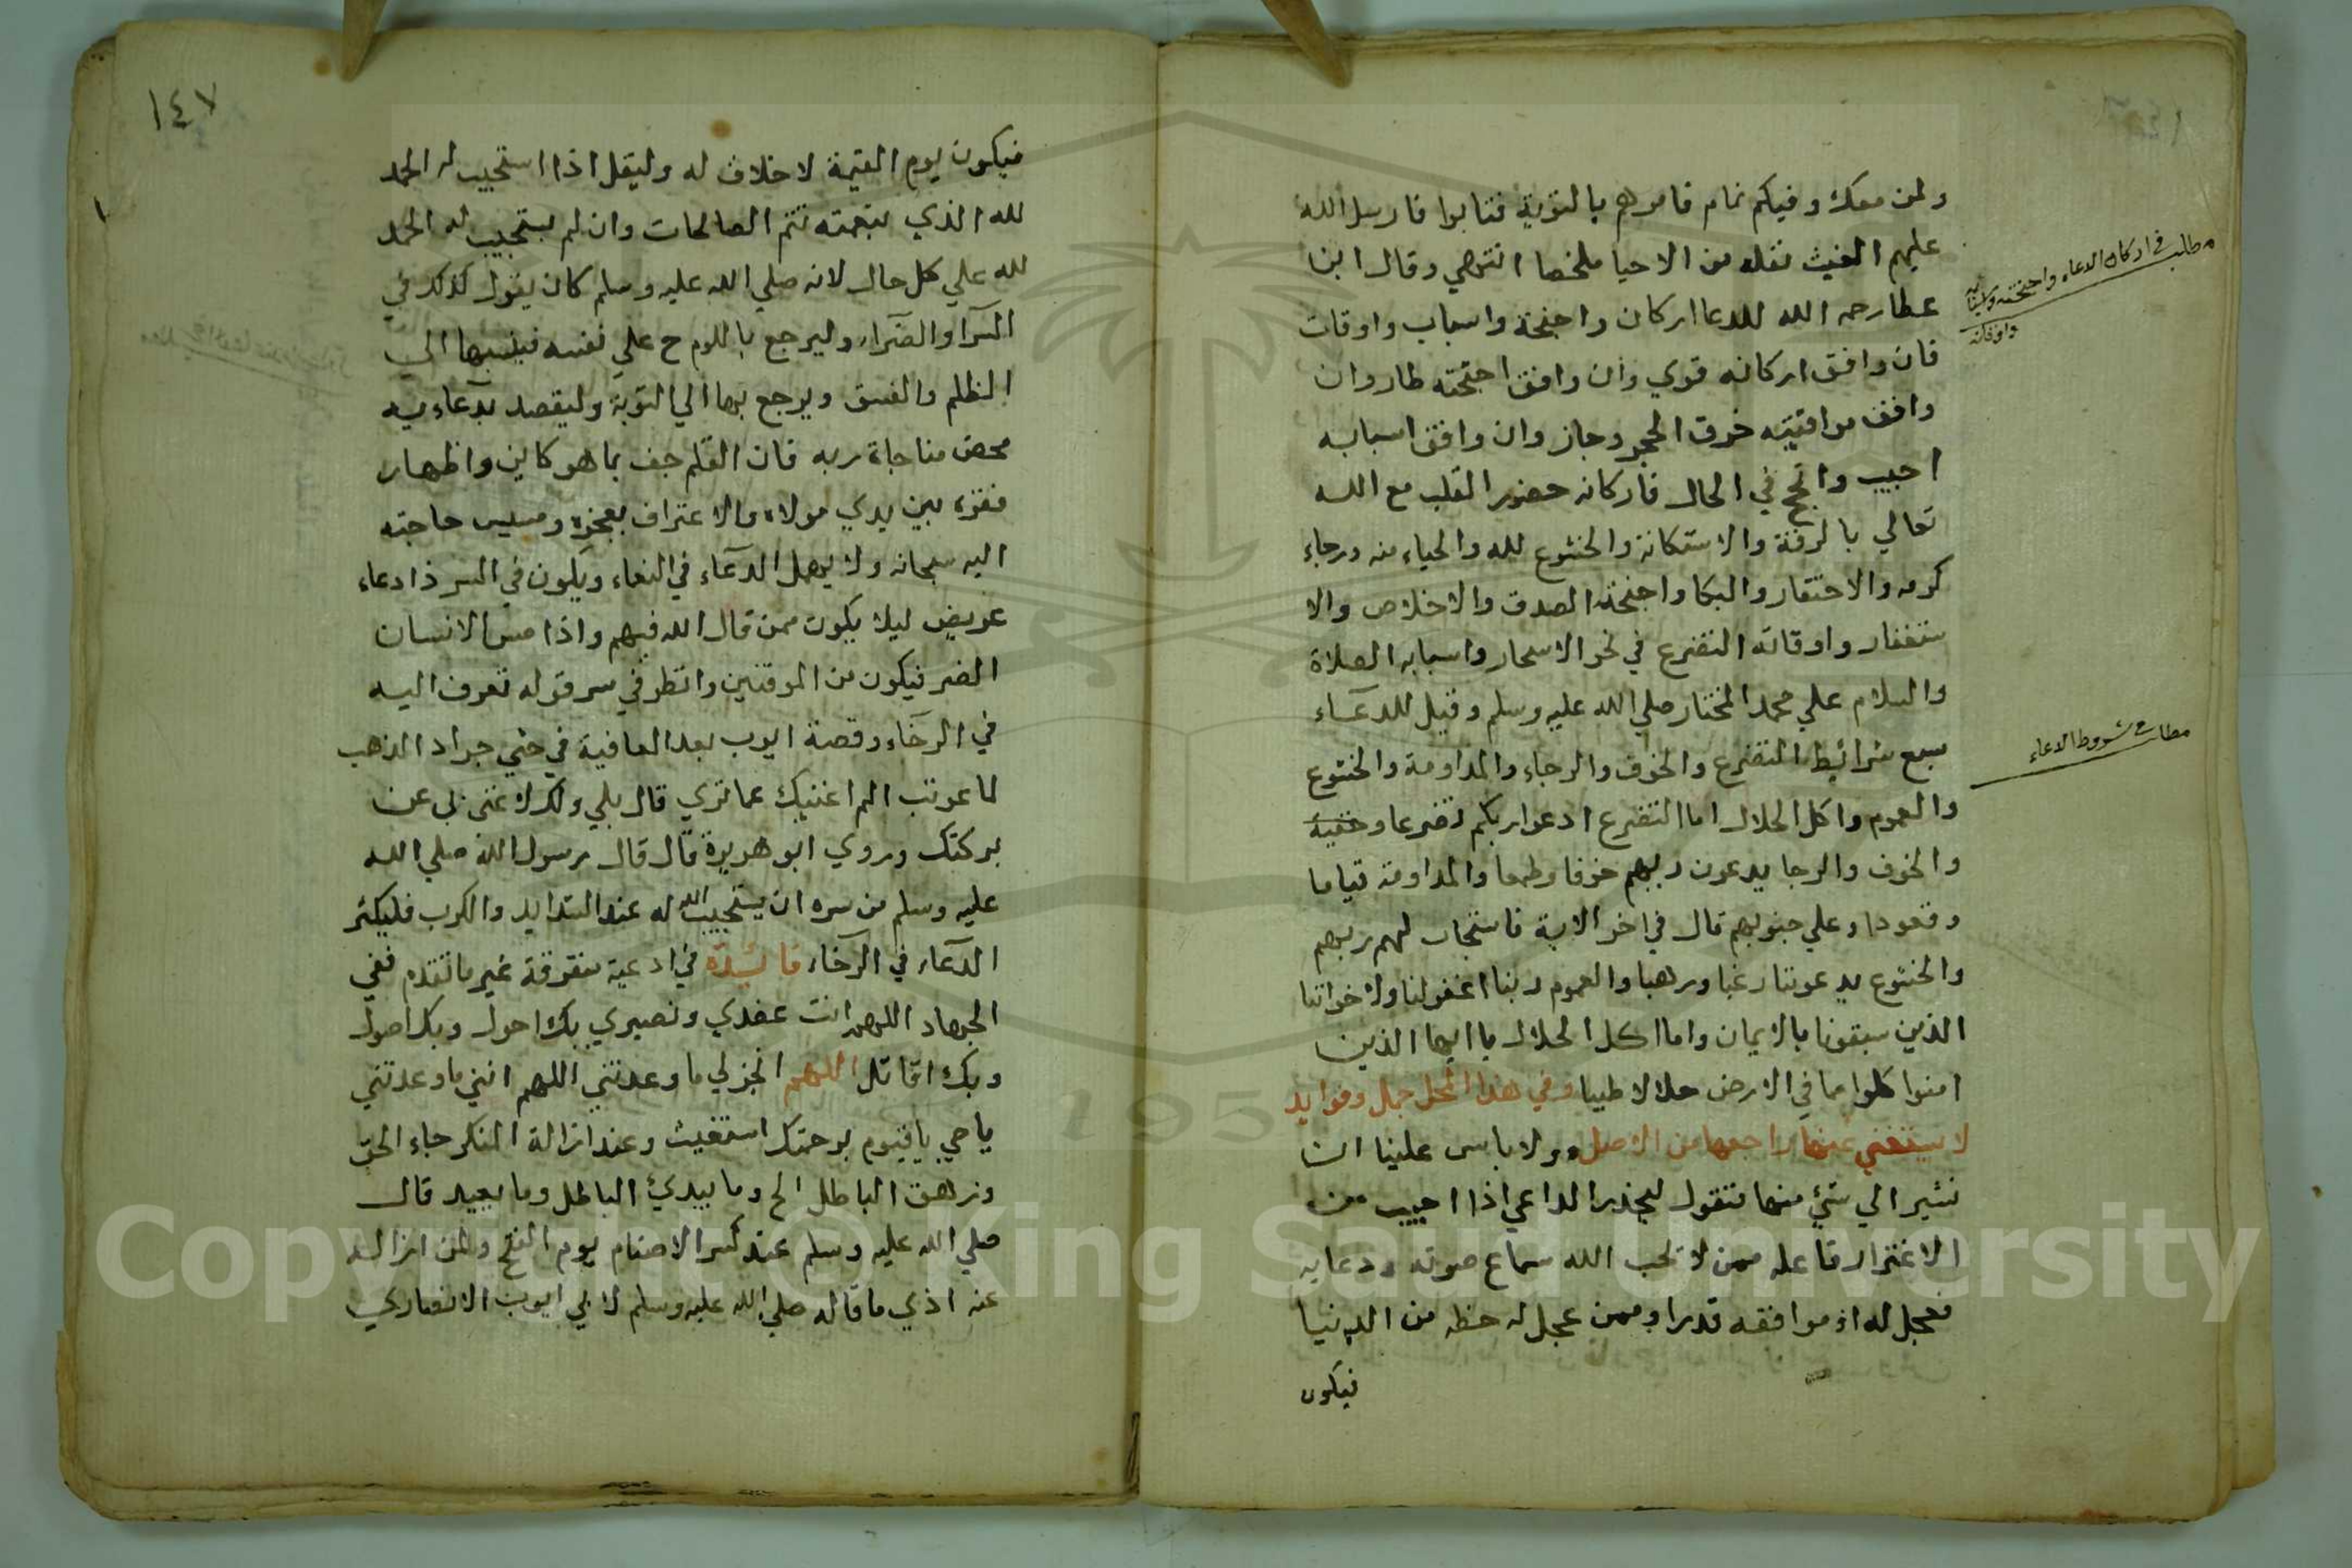 ولمن معك وفيكم نمام فامرهم بالتوبة فتابوا فارسل الله
عليهم الغيث نقله من الاحيا ملخصا انتهي وقال ابن
عطا رحمه الله للدعا اركان واجنحة واسباب واوقات
فان وافق اركانه قوي وان وافق اجنحته طار وان
وافق مواقيته خرق الحجر وجاز وان وافق اسبابه
اجيب وانجح في الحال فاركانه حضور القلب مع الله
تعالي بالرقة والاستكانة والخشوع لله والحياء منه ورجاء
كرمه والاحتقار والبكا واجنحته الصدق والاخلاص والا
ستغفار واوقاته التضرع في نحو الاسحار واسبابه الصلاة
والسلام علي محمد المختار صلي الله عليه وسلم وقيل للدعاء
سبع شرائيط التضرع والخوف والرجاء والمداومة والخشوع
والعموم واكل الحلال اما التضرع ادعوا ربكم تضرعا وخفية
والخوف والرجا يدعون ربهم خوفا وطمعا والمداومة قياما
وقعودا وعلي جنوبهم قال في اخر الاية فاستجاب لهم ربهم
والخشوع يدعوننا رغبا ورهبا والعموم ربنا اغفر لنا ولاخواننا
الذين سبقونا بالايمان واما اكل الحلال يا ايها الذين
امنوا كلوا مما في الارض حلالا طيبا وفي هذا المحل جمل وفوايد
لا يستغني عنها راجعها من الاصل ولا باس علينا ان
نشير الي شئ منها فنقول ليحذر الداعي اذا اجيب من
الاغترار فاعله ممن لا تحب الله سماع صوته ودعايه
فعجل له اذ موافقه قدرا وممن عجل له حظه من الدنيا
فيكون
مطلب في اركان الدعاء واجنحته واسبابه
واوقاته
مطلب شروط الدعاء
١٤٧
فيكون يوم القيمة لا خلاق له وليقل اذا استجيب له الحمد
لله الذي بنعمته تتم الصالحات وان لم يستجيب له الحمد
لله علي كل حال لانه صلي الله عليه وسلم كان يقول كذلك في
السرا والضراء وليرجع باللوم ح علي نفسه فينسبها الي
الظلم والفسق ويرجع بها الي التوبة وليقصد بدعاءيه
محض مناجاة ربه فان القلم جف بما هو كاين واظهار
فقره بين يدي مولاه والاعتراف بعجزه ومسيس حاجته
اليه سبحانه ولا يهمل الدعاء في النعماء ويكون في السر ذا دعاء
عريض ليلا يكون ممن قال الله فيهم واذا مس الانسان
الضر فيكون من الموقنين وانظر في سر قوله تعرف اليه
في الرخاء وقصة ايوب بعد العافية في حثي جراد الذهب
لما عوتب الم اغنيك عما تري قال بلي ولكن لا غني لي عن
بركتك وروي ابو هريرة قال قال رسول الله صلي الله
عليه وسلم من سره ان يستجيب الله له عند الشدايد والكرب فليكثر
الدعاء في الرخاء فائدة في ادعية متفرقة غير ما تقدم ففي
الجهاد اللهم انت عضدي ونصيري بك احول وبك اصول
وبك اقاتل اللهم انجز لي ما وعدتني اللهم اتني ما وعدتني
يا حي يا قيوم برحمتك استغيث وعند ازالة المنكر جاء الحق
وزهق الباطل الخ وما يبدئ الباطل وما يعيد قال
صلي الله عليه وسلم عند كسر الاصنام يوم الفتح ولمن ازال
عنه اذي ما قاله صلي الله عليه وسلم لابي ايوب الانصاري
Copyright © King Saud University
195